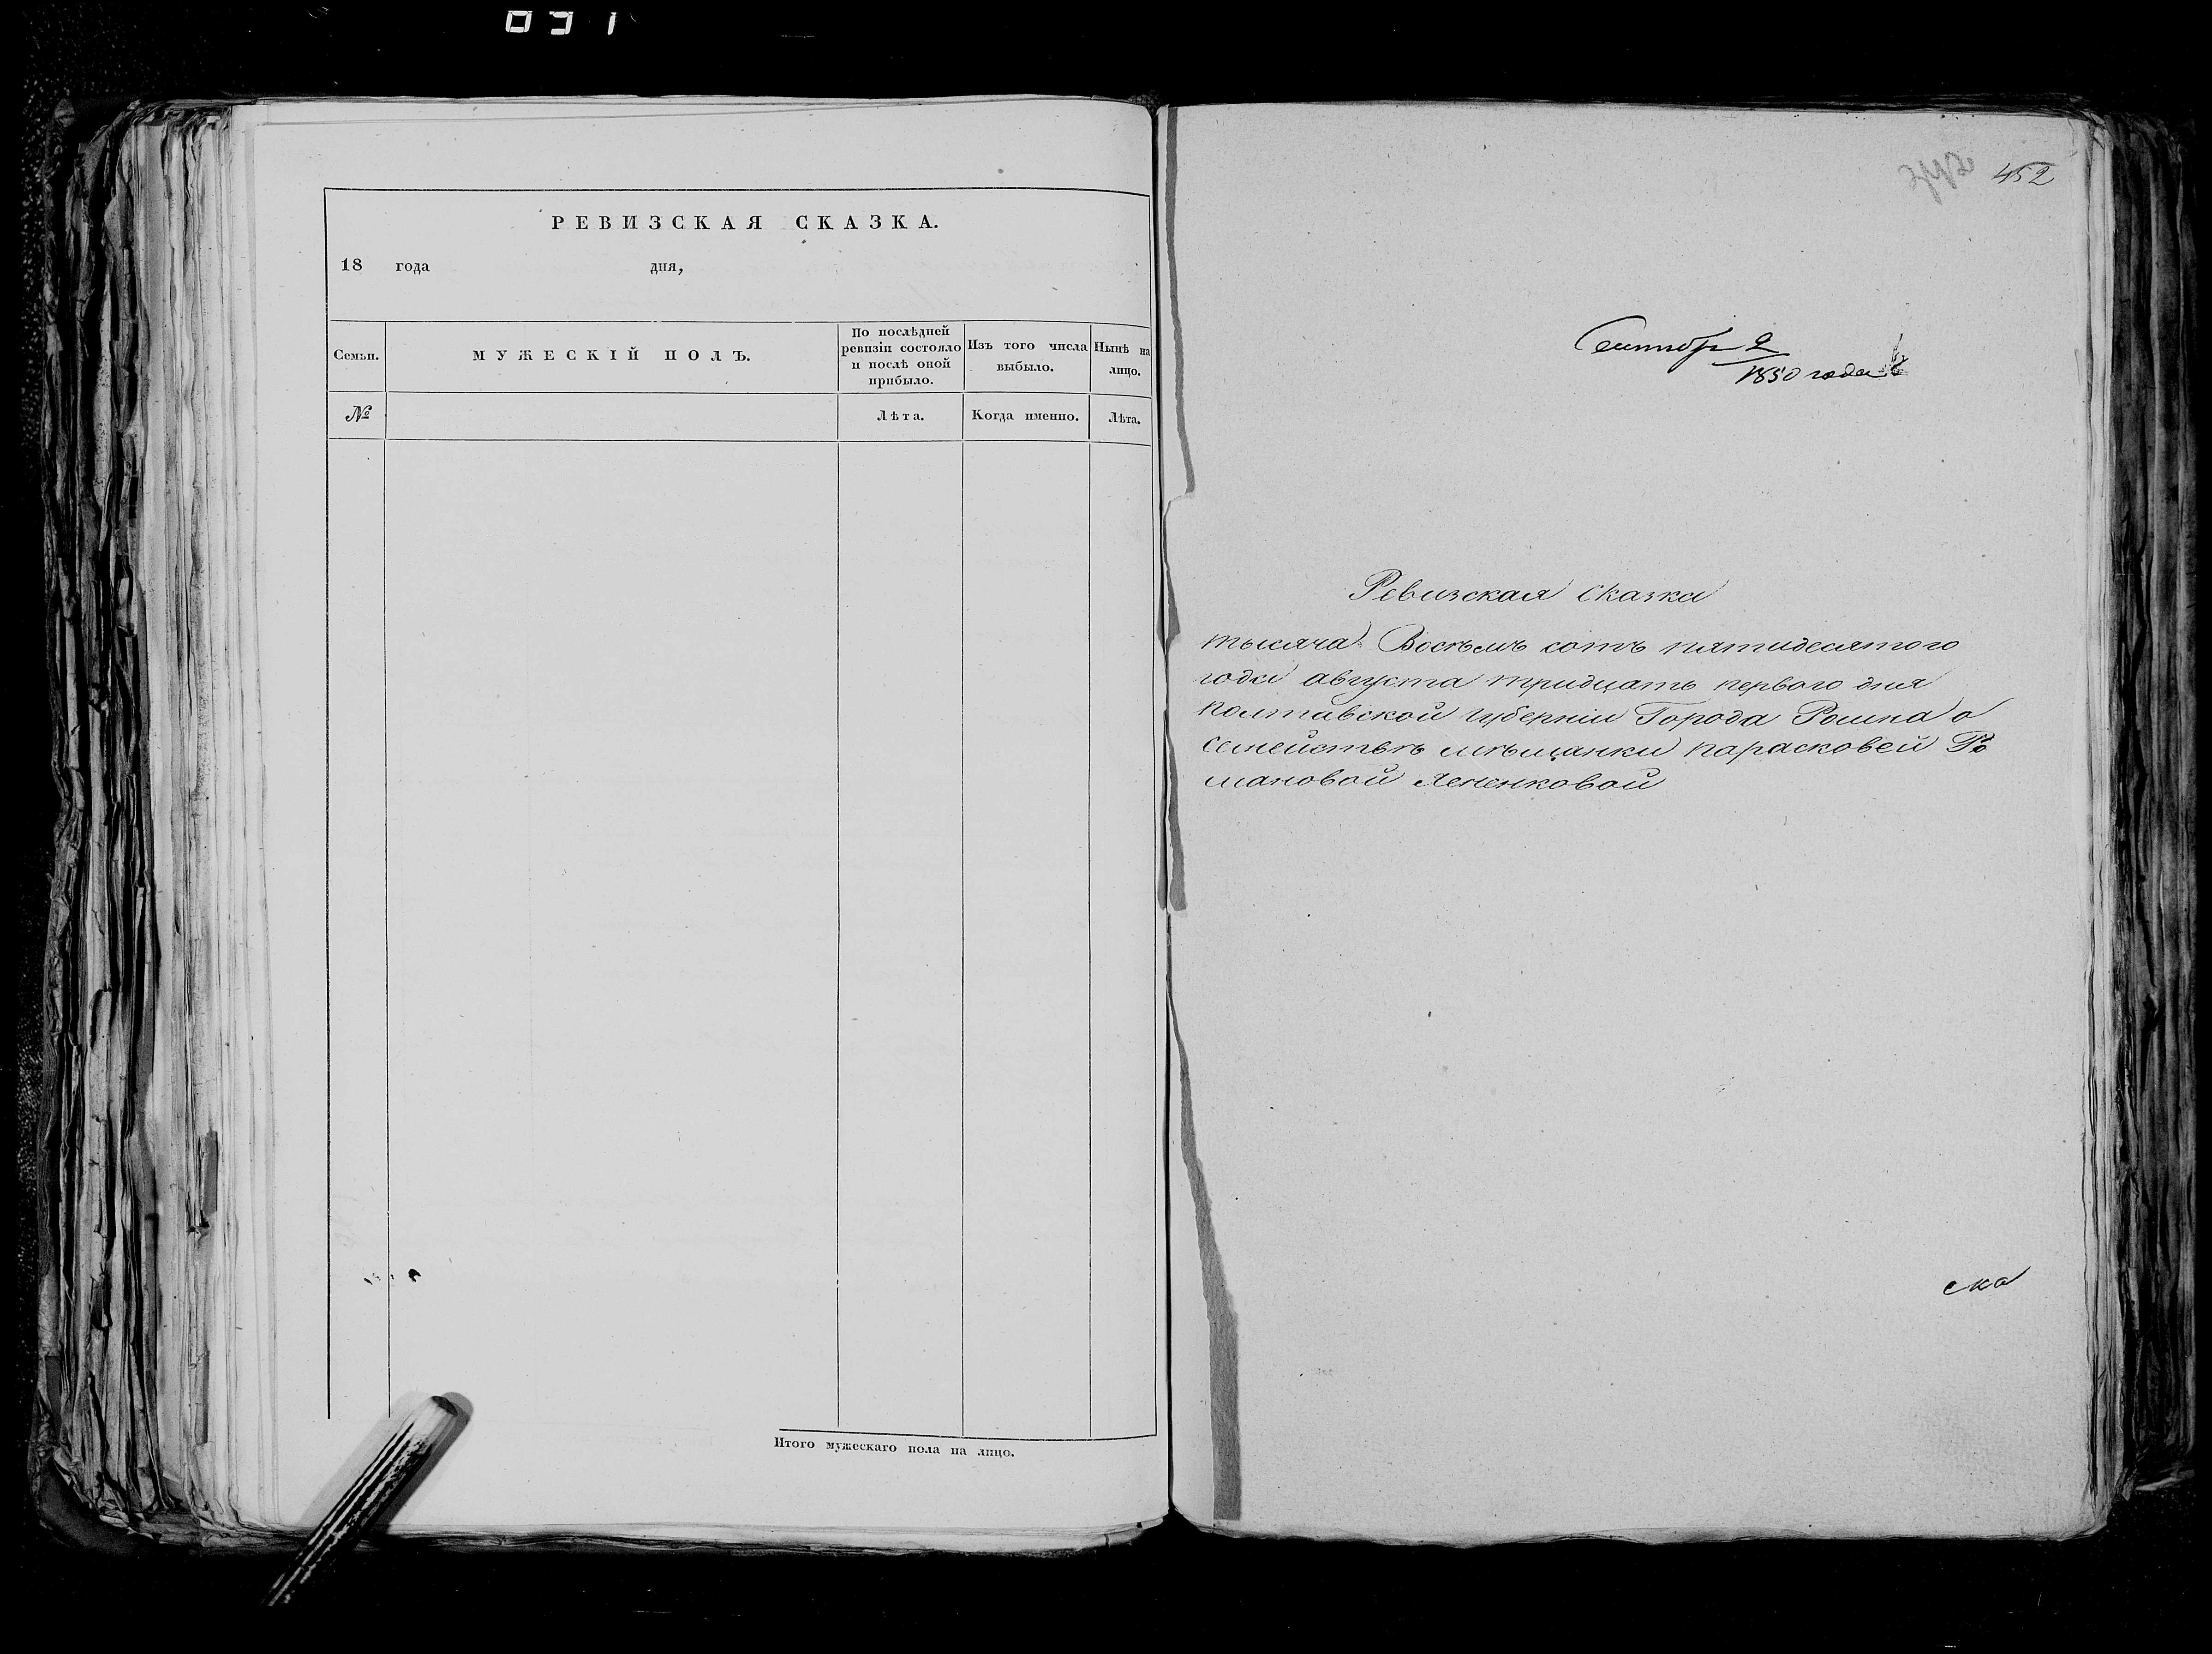 РЕВИЗСКАЯ СКАЗКА.
18 года дня,
Семьи.
МУЖЕСКІЙ ПОЛЪ.
По послѣдней
ревизіи состояло
и послѣ оной
прибыло.
Изъ того числа
выбыло.
Нынѣ на
лицо.
№
Лѣта.
Когда именно.
Лѣта.
Итого мужескаго пола на лицо.
452
2
1850 года
Ревизская Сказка
тысяча Восѣмъ сотъ пятидесятого
года августа тридцать первого дня
полтавской губерніи Города Ромна о
семействѣ мѣщанки парасковей Ро
мановой Яененковой
ска